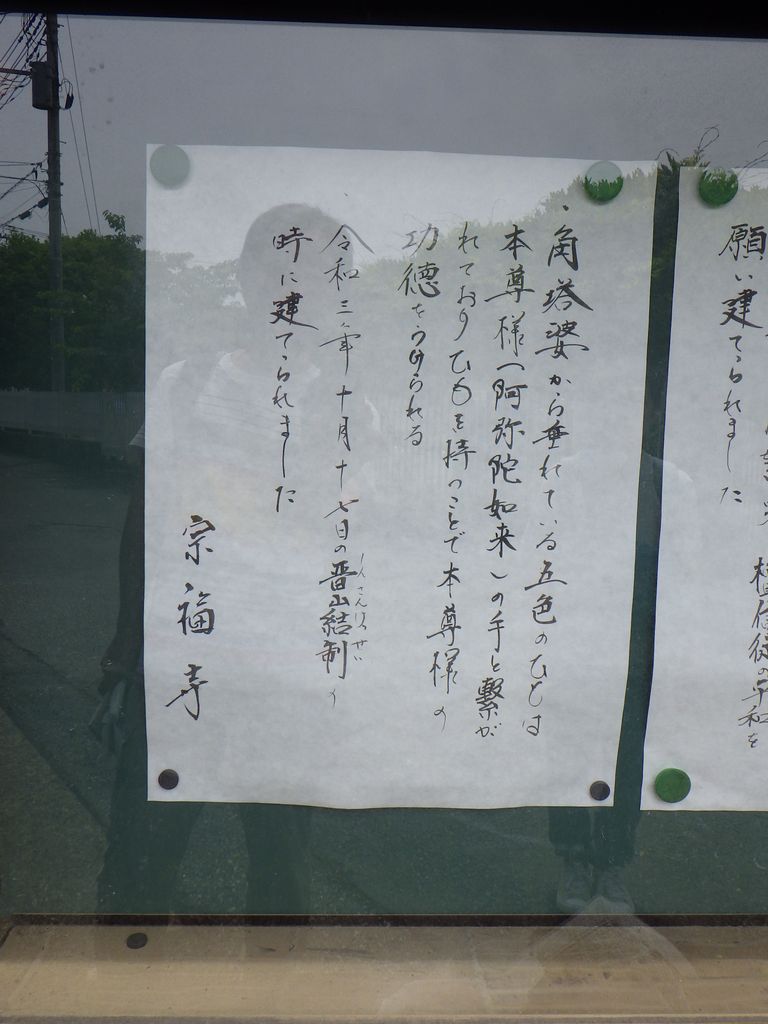 願い建てられました
・角塔婆から垂れている五色のひもは
本尊様（阿弥陀如来）の手と繋が
れておりひもを持つことで本尊様の
功徳をうけられる
・令和三年十月十七日の晋山結制の
しんさんけっせい
時に建てられました
宗福寺